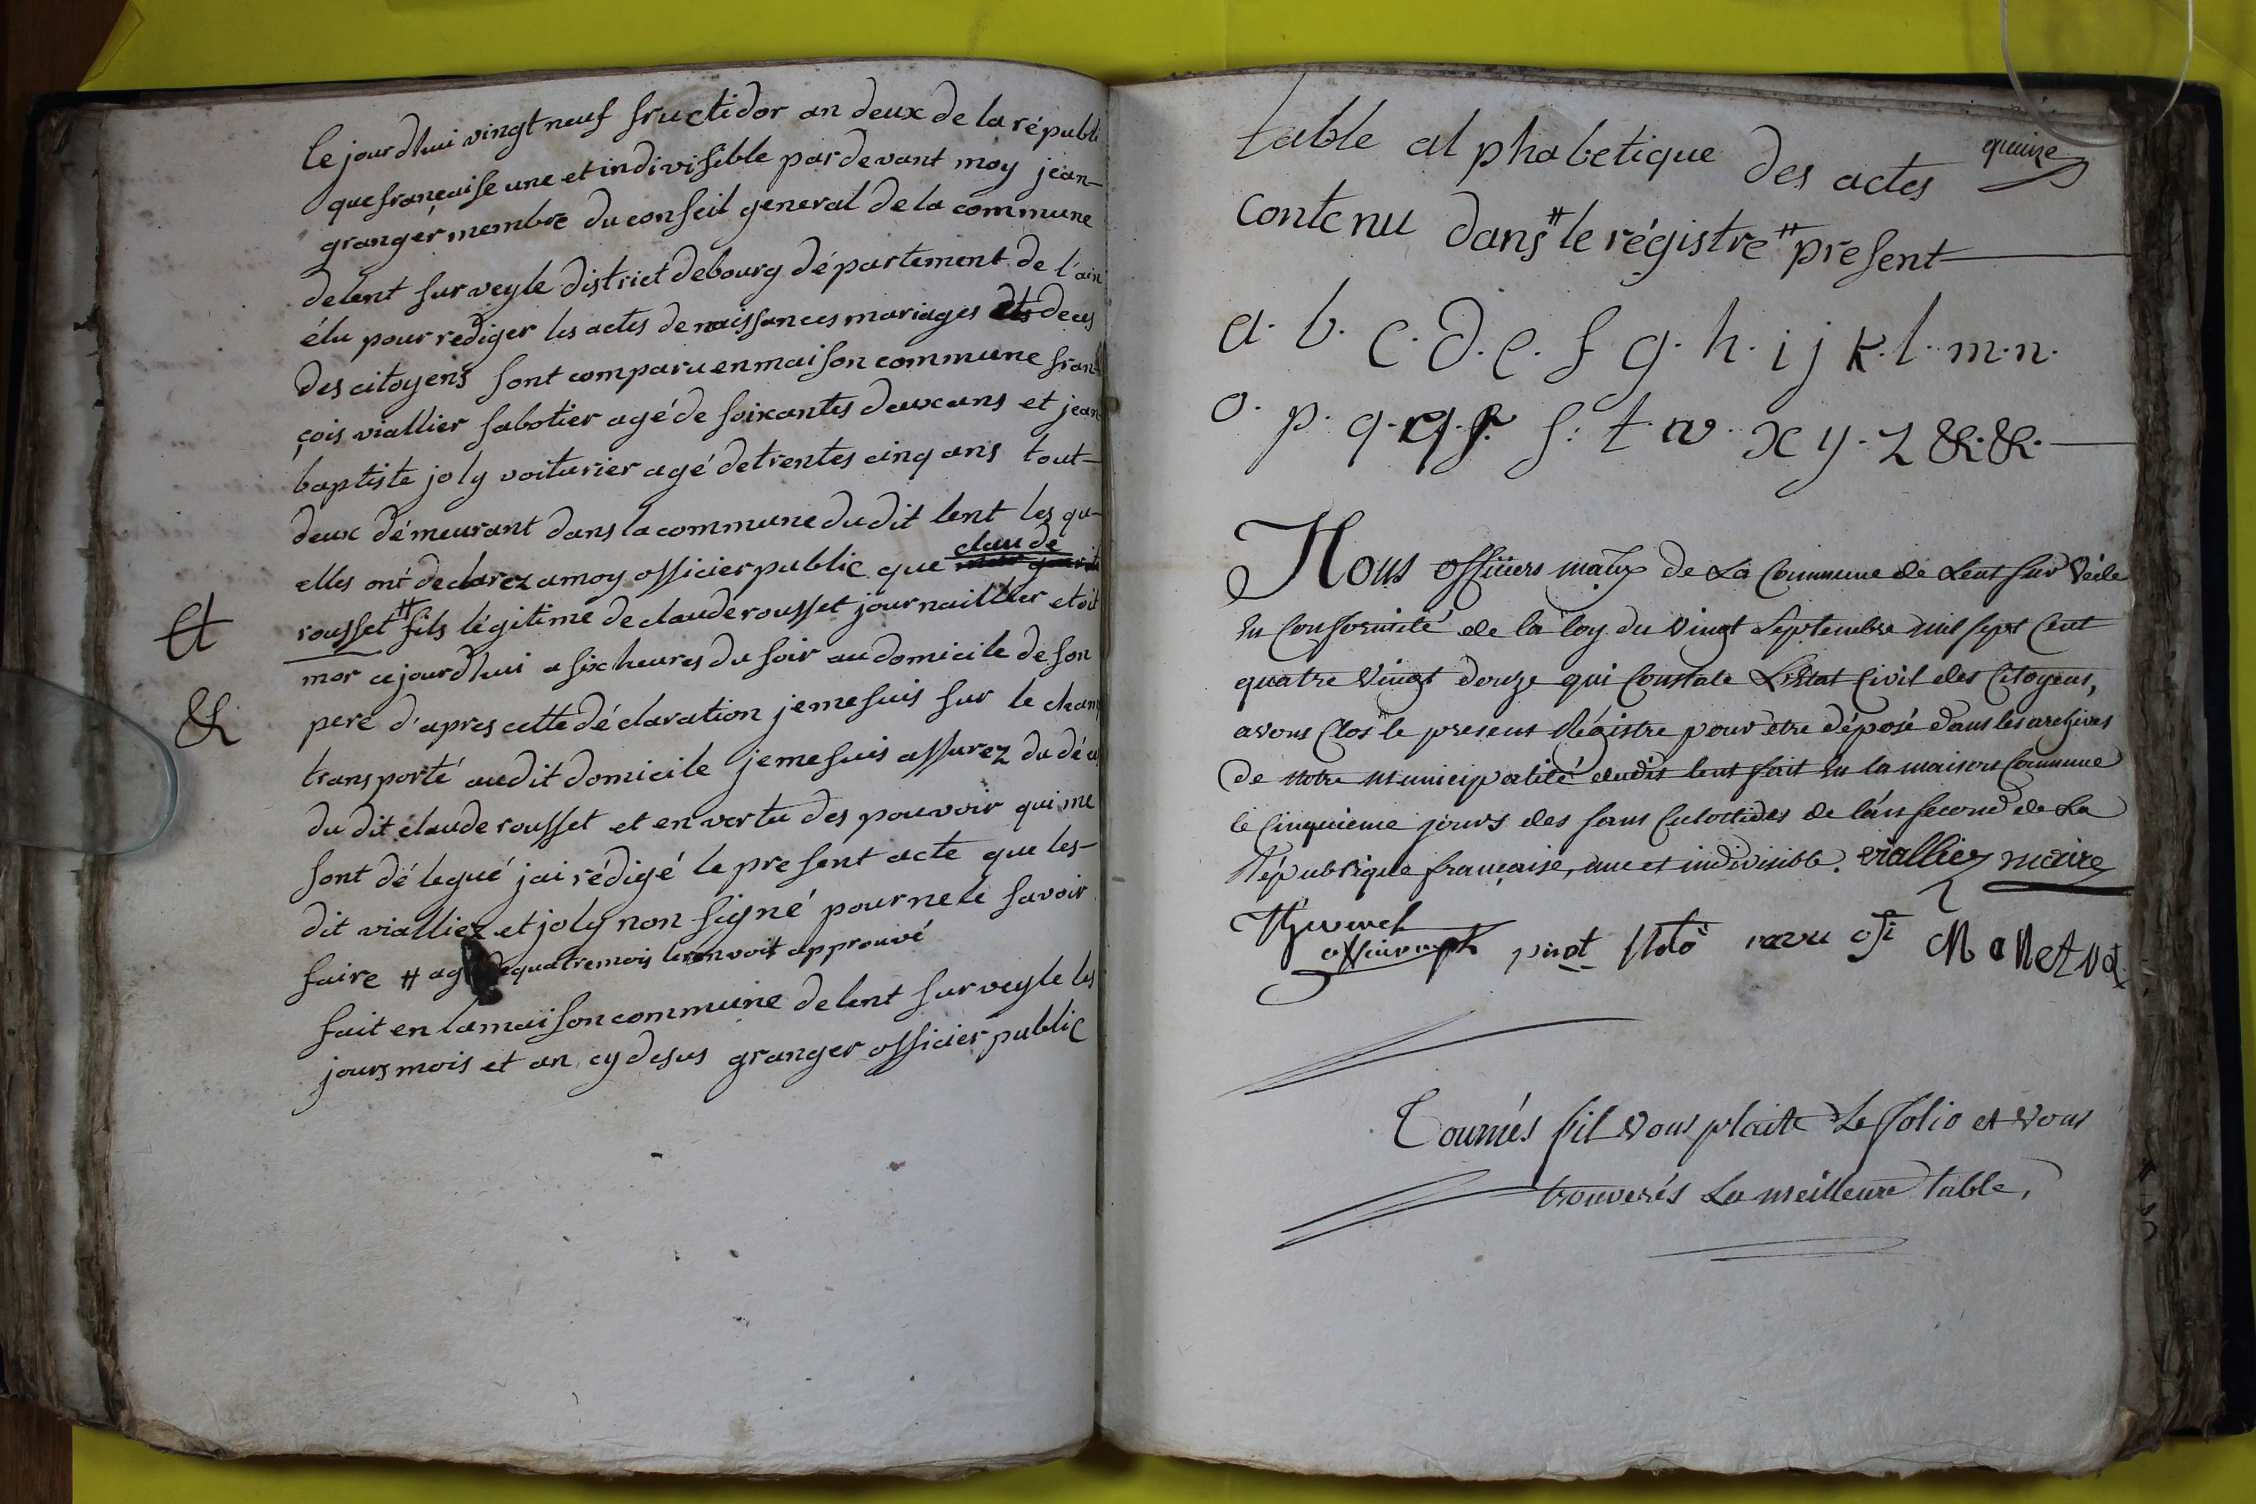 le jourdhui vingt neuf fructidor an deux de la républi
que française une et indivisible pardevant moy jean
granger membre du conseil general de la commune
delent sur veyle district debourg département de l'ain
élu pour rediger les actes de naissances mariages deces
des citoyens sont comparu en maison commune fran
çois viallier sabotier agé de soixantes deux ans et jean
baptiste joly voiturier agé detrentes cinq ans tout
deux démeurant dans la commune du dit lent les qu
elles ont declarez a moy officier public que claude
rousset # fils légitime de claude rousset journaillier etoit
mor cejourdhui a six heures du soir au domicile de son
pere d'apres cette déclaration je me suis sur le cham
transporté audit domicile je me suis assurez du déces
du dit claude rousset et en vertu des pouvoir qui me
sont délegué jai rédigé le present acte que les
dit viallier et joly non signé pour ne le savoir
faire # quatre mois approuvé
fait en la maison commune de lent sur veyle les
jours mois et an cy desus granger officier public
et
&
quinze
table alphabetique des actes
contenu dans # le régistre # present
a. b. c. d. e. f g. h. i j k. l. m. n.
o. p. q. s: t. x y. z &. &.
Nous officiers maux de La Commune de Lent sur Veile
En Conformité de la loy du Vingt Septembre mil sept Cent
quatre Vingt douze qui Constate L'Etat Civil des Citoyens,
avons Clos le present Régistre pour être déposé dans les archives
de notre municipalité dudit lent fait En la maison Commune
le Cinquieme jours des sans Culottides de l'an second de La
République française, une et indivisible. viallier maire
pirot
Tournés s'il vous plaite Le folio et vous
trouverés La meilleure table,